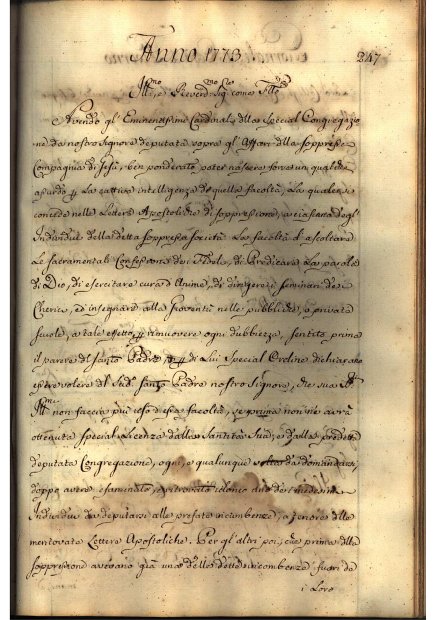 Anno 1773
247
Ill.mo e Rever.mo Sig. come Fllo
Avendo gl' Eminentissimi Cardinali della Special Congregazio
ne da nostro Signore deputata sopra gl' Affari della soppressa
Compagnia di Gesù, ben ponderato poter nascere forse un qualche
assurdo la cattiva intelligenza di quella facoltà, la quale si
concede nelle Lettere Apostoliche di soppressione, a ciascuno degl'
Individui della detta soppressa Società la facoltà d'ascoltare
le Sacramentali Confessioni dei Fedeli, di Predicare la parola
di Dio, di esercitare cura d'Anime, di dirigere i seminari de
Cherici, ed insegnare alla Gioventù nelle pubbliche, o private
scuole, a tale effetto, rimuovere ogni dubbiezza, sentito prima
il parere del Santo Padre, e di Lui Special Ordine dichiarano
essere volere del Sud. Santo Padre nostro Signore, che sua
Ill.ma non faccia più uso d'essa facoltà, se prima non ne avrà
ottenuta special Licenza dalla Santità Sua, e dalla predetta
deputata Congregazione, ogni, e qualunque volta da domandarsi
doppo avere esaminato, e ritrovato idoneo uno dei medesimi
Individui da deputarsi alle prefate incumbenze, a tenore delle
mentovate Lettere Apostoliche. Per gl'altri poi, che prima della
soppressione avevano già una delle dette incombenze fuori de
i Loro